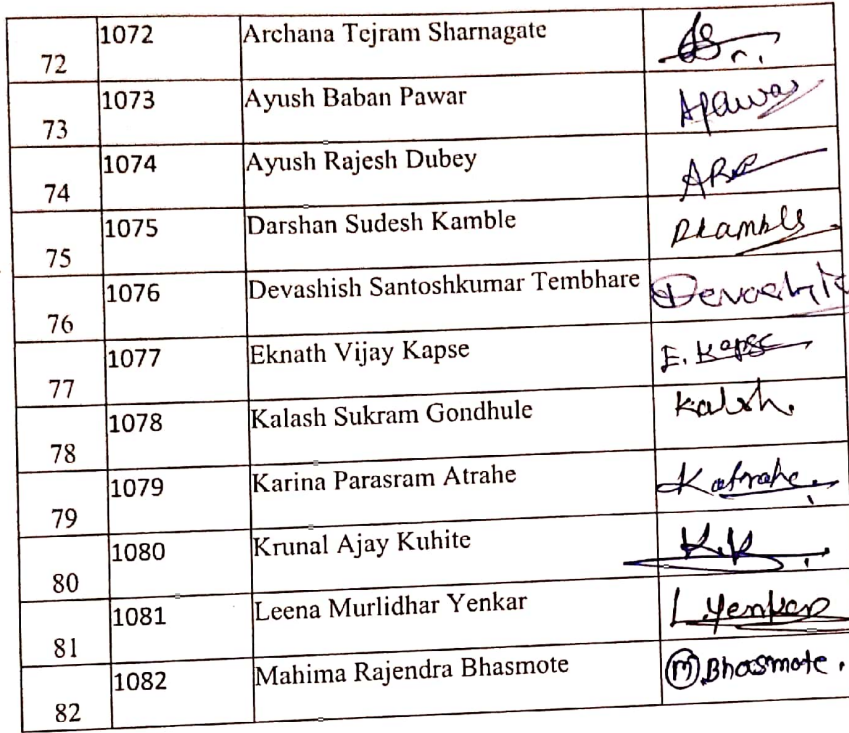 72 1072 Archana Tejram Sharnagate
73 1073 Ayush Baban Pawar APawar
74 1074 Ayush Rajesh Dubey
75 1075 Darshan Sudesh Kamble DKamble
76 1076 Devashish Santoshkumar Tembhare
77 1077 Eknath Vijay Kapse E. Kapse
78 1078 Kalash Sukram Gondhule
79 1079 Karina Parasram Atrahe Katrahe
80 1080 Krunal Ajay Kuhite K.K
81 1081 Leena Murlidhar Yenkar L.Yenkar
82 1082 Mahima Rajendra Bhasmote M Bhasmote.